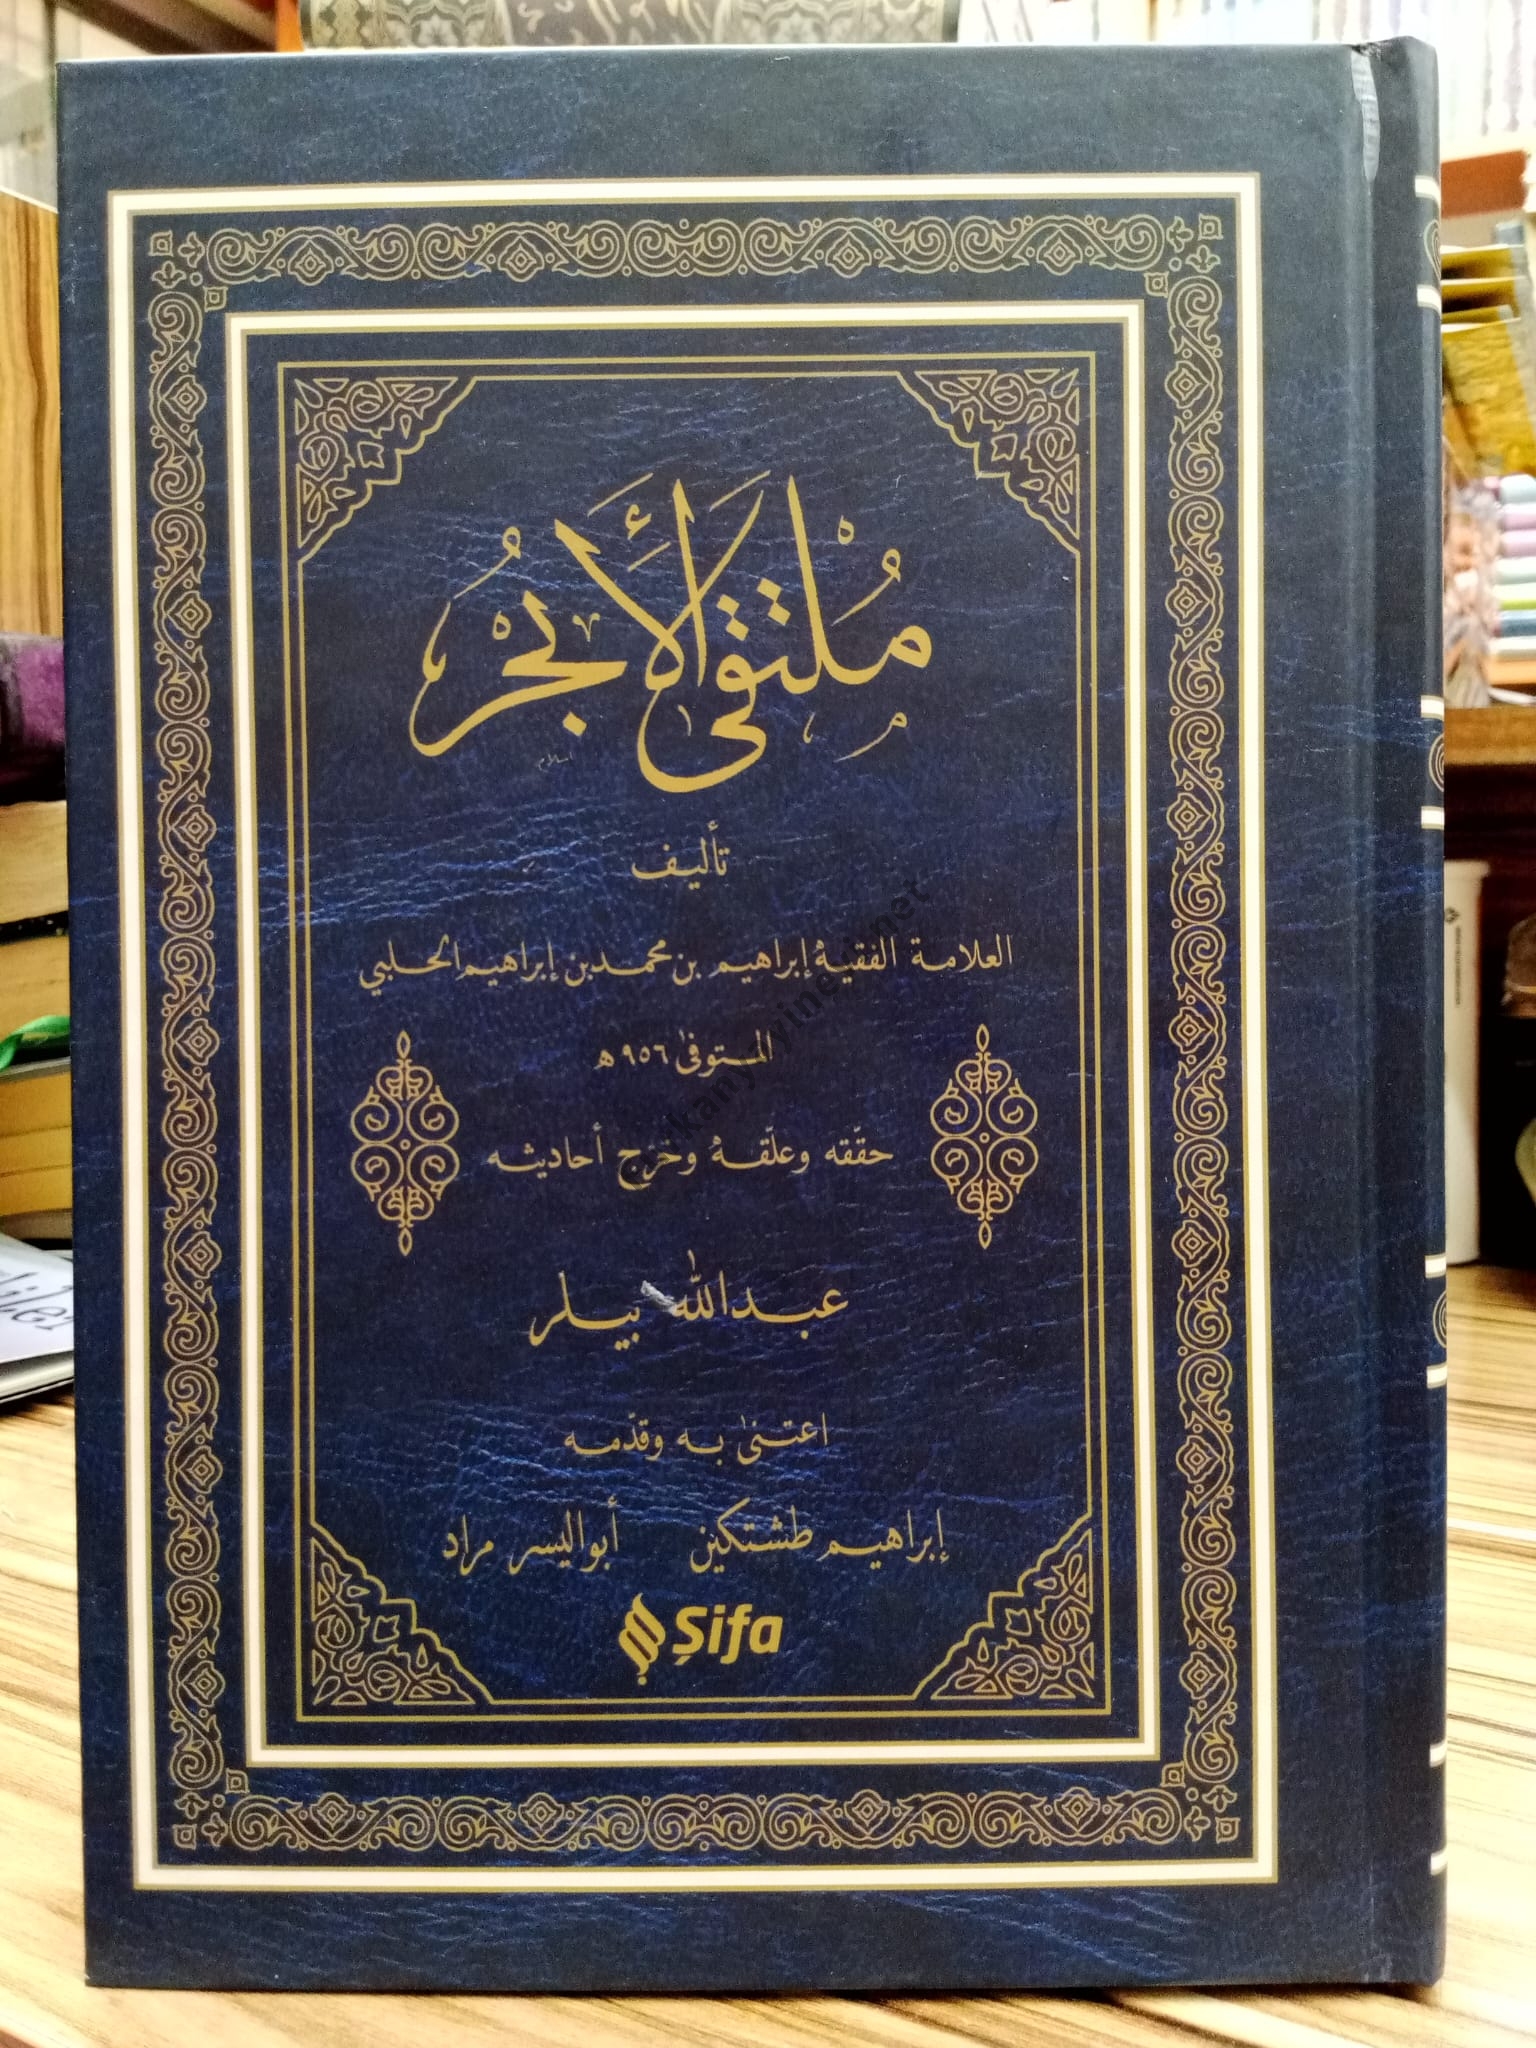 مُلْتَقَى الأَبْحُرِ
تأليف
العلامة الفقيه إبراهيم بن محمد بن إبراهيم الحلبي
المتوفى ٩٥٦ هـ
حقّقه وعلّقه وخرّج أحاديثه
عبدالله بيلر
اعتنى به وقدّمه
إبراهيم طشتكين أبواليسر مراد
Şifa